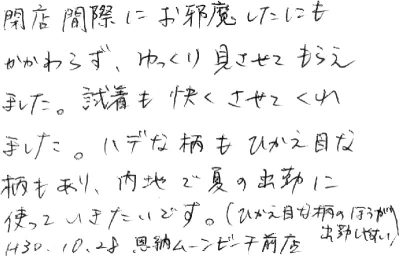 閉店間際にお邪魔したにも
かかわらず、ゆっくり見させてもらえ
ました。試着も快くさせてくれ
ました。ハデな柄もひかえ目な
柄もあり、内地で夏の出勤に
使っていきたいです。(ひかえ目な柄のほうが
出勤しやすい)
H30.10.28 恩納ムーンビーチ前店